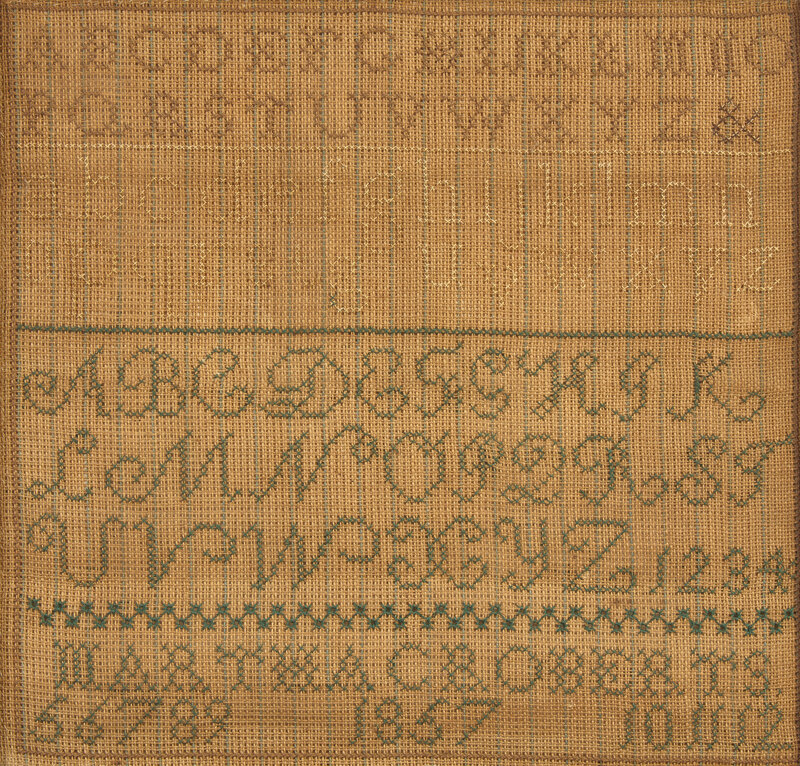 A B C D E F G H I J K L M N O
P Q R S T U V W X Y Z &
a b c d e f g h i k l m n
u v w x y z
A B C D E F G H I K
L M N O P Q R S T
U V W X Y Z 1 2 3 4
MARTHA C ROBERTS.
5 6 7 8 9 1857 10 11 12